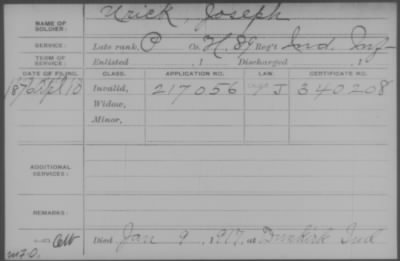 Urick, Joseph
NAME OF SOLDIER:
SERVICE: Late rank, P Co. H, 89 Reg't Ind. Inf
TERM OF SERVICE: Enlisted , 1 Discharged , 1
DATE OF FILING. CLASS. APPLICATION NO. LAW. CERTIFICATE NO.
1876 Apl 10 Invalid, 217056 J 340208
Widow,
Minor,
ADDITIONAL SERVICES:
REMARKS:
Died Jan 9, 1917, at Dunkirk Ind